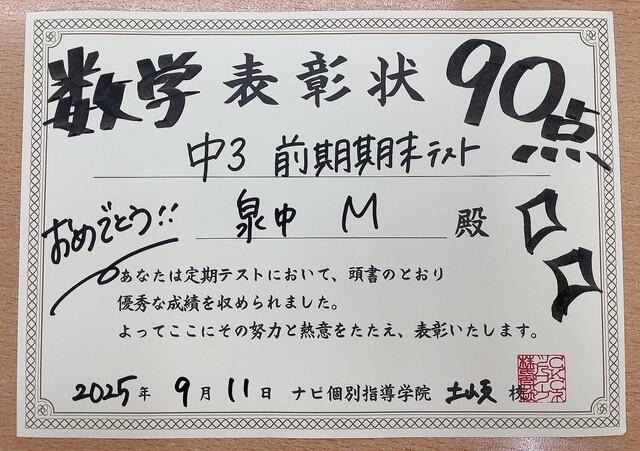 数学 表彰状 90点
中3 前期期末テスト
おめでとう!!
泉中 M 殿
あなたは定期テストにおいて、頭書のとおり
優秀な成績を収められました。
よってここにその努力と熱意をたたえ、表彰いたします。
2025年 9月 11日 ナビ個別指導学院